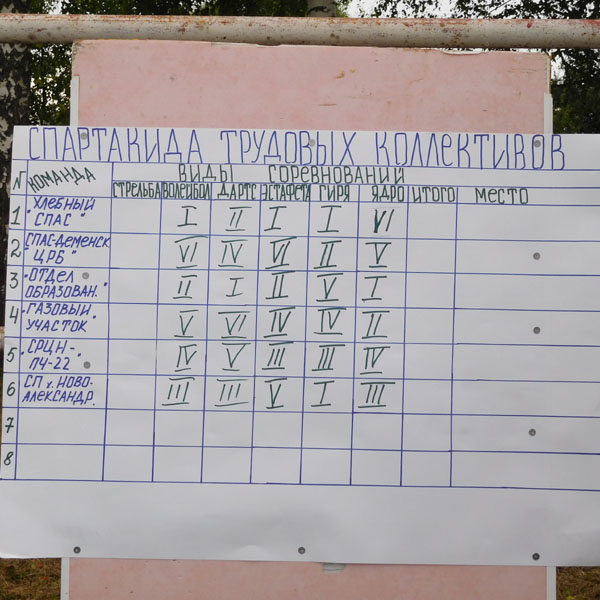 СПАРТАКИДА ТРУДОВЫХ КОЛЛЕКТИВОВ
N КОМАНДА ВИДЫ СОРЕВНОВАНИЙ
СТРЕЛЬБА ВОЛЕЙБОЛ ДАРТС ЭСТАФЕТА ГИРЯ ЯДРО ИТОГО МЕСТО
1 "ХЛЕБНЫЙ СПАС" I II I I VI
2 "СПАС-ДЕМЕНСК ЦРБ" VI IV VI II V
3 "ОТДЕЛ ОБРАЗОВАН." II I II V I
4 "ГАЗОВЫЙ УЧАСТОК" V VI IV IV II
5 "СРЦН-" ПЧ-22" IV V III III IV
6 СП х. НОВО-АЛЕКСАНДР. III III V I III
7
8